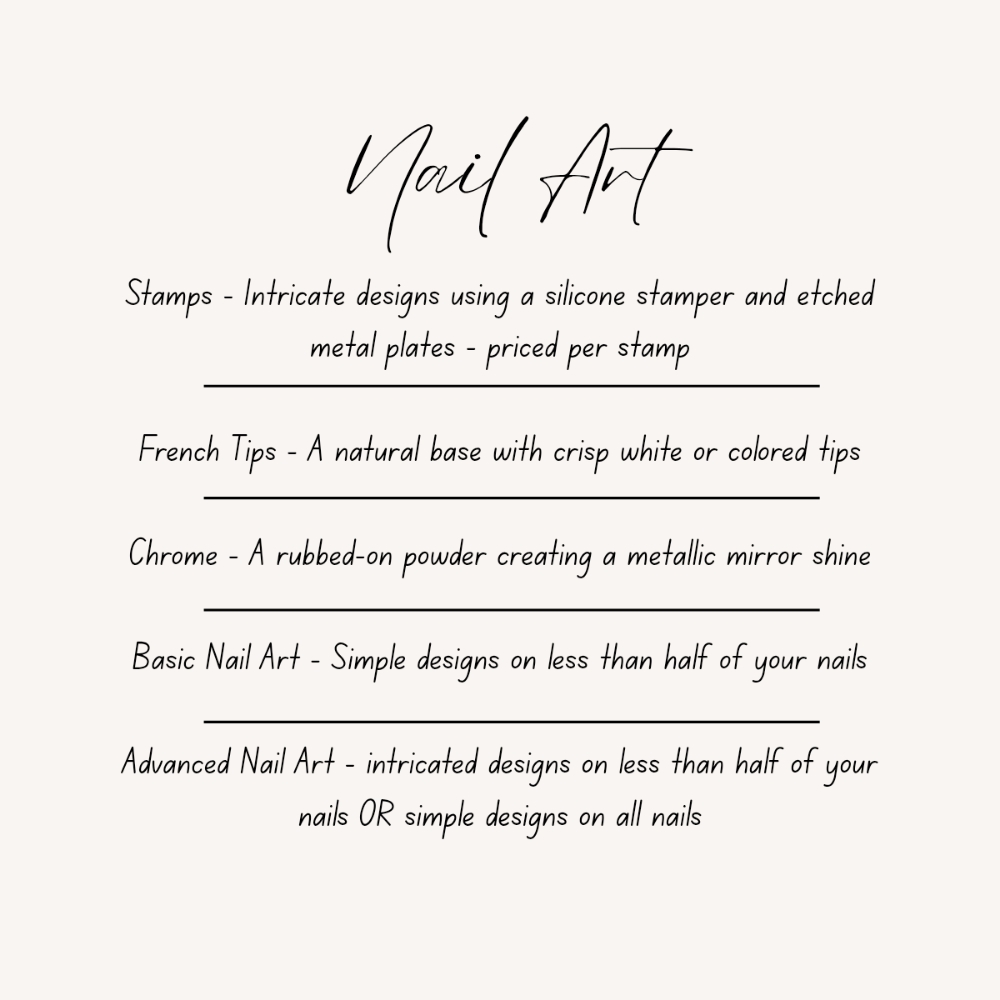 Nail Art
Stamps - Intricate designs using a silicone stamper and etched
metal plates - priced per stamp
French Tips - A natural base with crisp white or colored tips
Chrome - A rubbed-on powder creating a metallic mirror shine
Basic Nail Art - Simple designs on less than half of your nails
Advanced Nail Art - intricated designs on less than half of your
nails OR simple designs on all nails